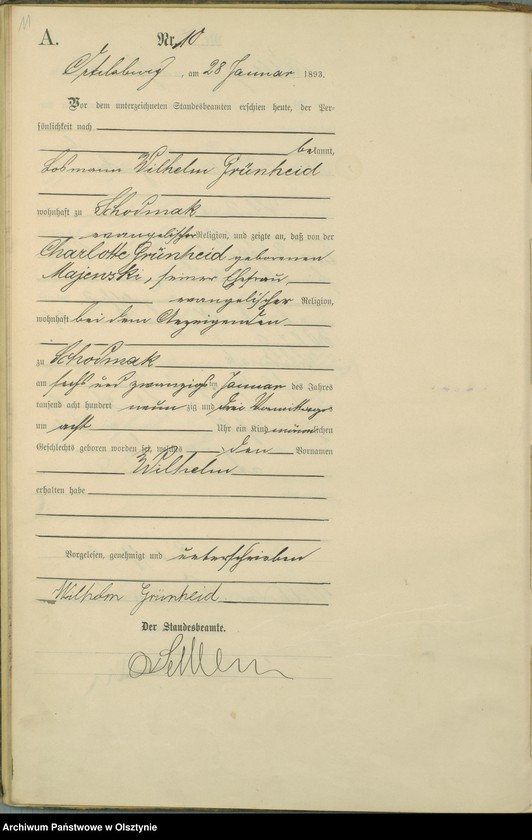 11
A.
Nr. 10
Ortelsburg, am 28 Januar 1893.
Vor dem unterzeichneten Standesbeamten erschien heute, der Per-
sönlichkeit nach
bekannt,
Losmann Wilhelm Grünheid
wohnhaft zu Schodmak
evangelischer Religion, und zeigte an, daß von der
Charlotte Grünheid geborenen
Majewski, seiner Ehefrau,
evangelischer Religion,
wohnhaft bei dem Anzeigenden
zu Schodmak
am sechs und zwanzigsten Januar des Jahres
tausend acht hundert neunzig und drei Vormittags
um acht Uhr ein Kind männlichen
Geschlechts geboren worden sei, welches den Vornamen
Wilhelm
erhalten habe
Vorgelesen, genehmigt und unterschrieben
Wilhelm Grünheid
Der Standesbeamte.
Archiwum Państwowe w Olsztynie